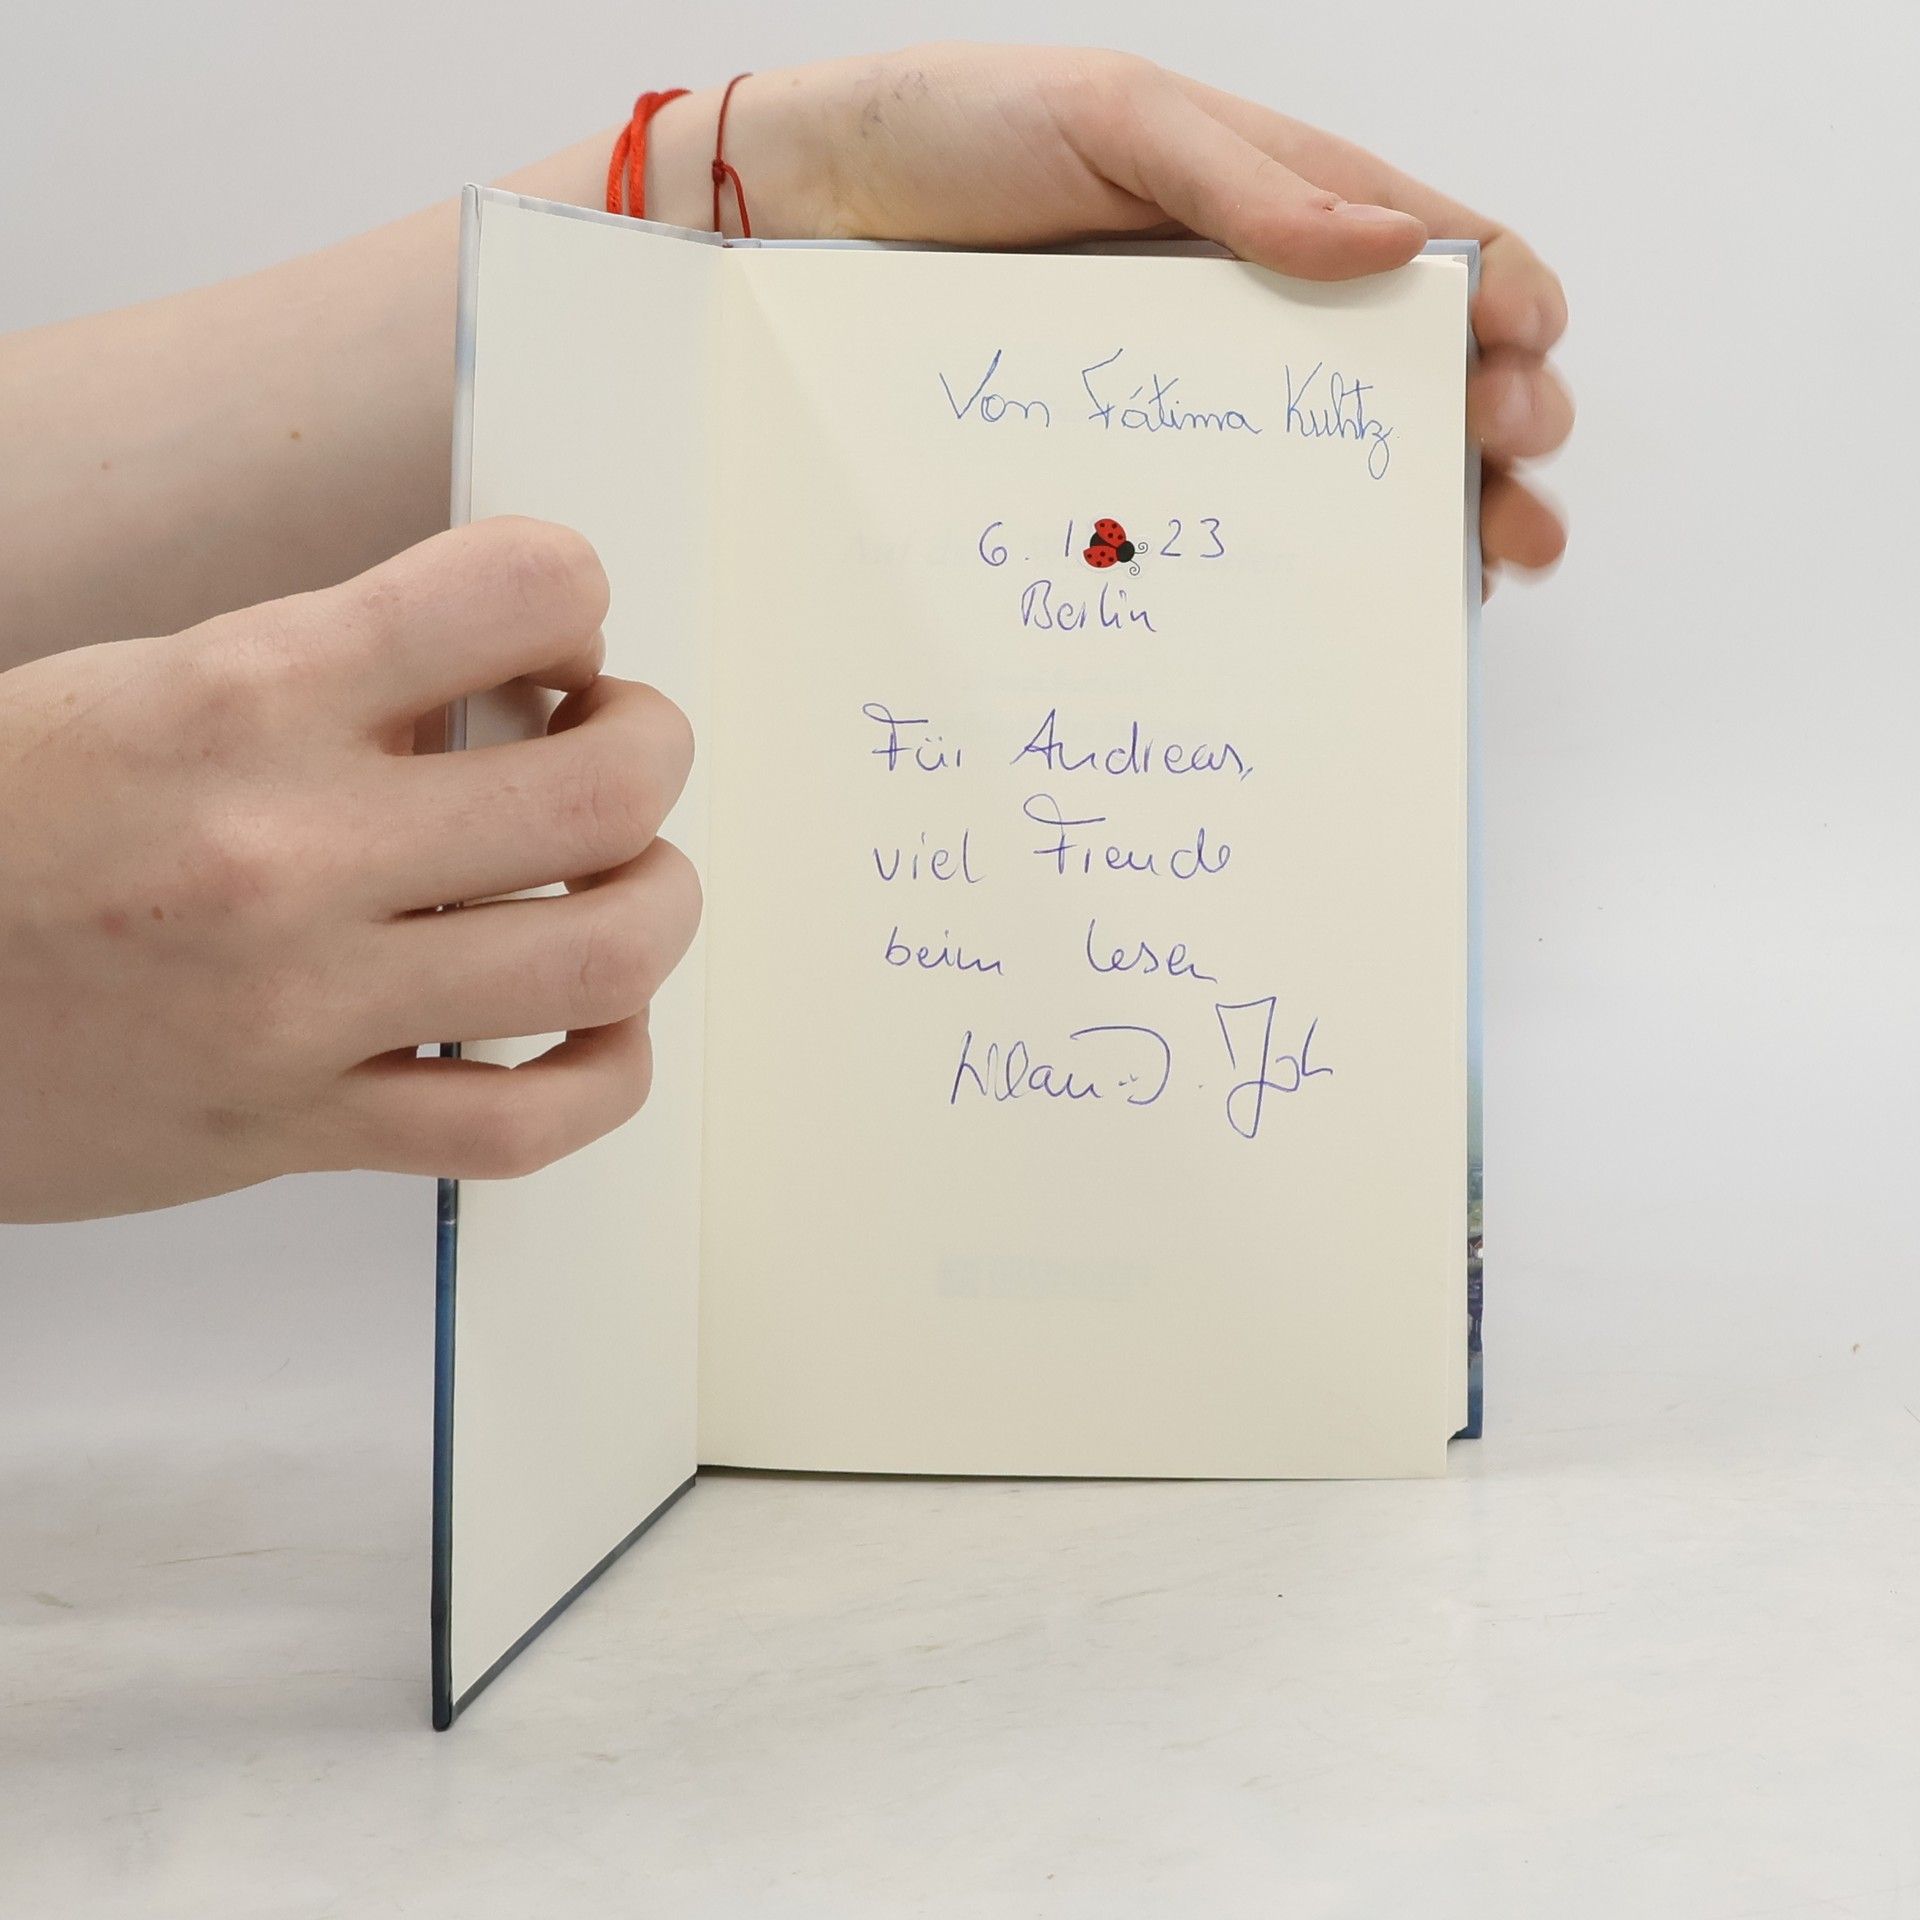 Von Fátima Kuhtz
6. 1 23
Berlin
Für Andreas,
viel Freude
beim Lesen